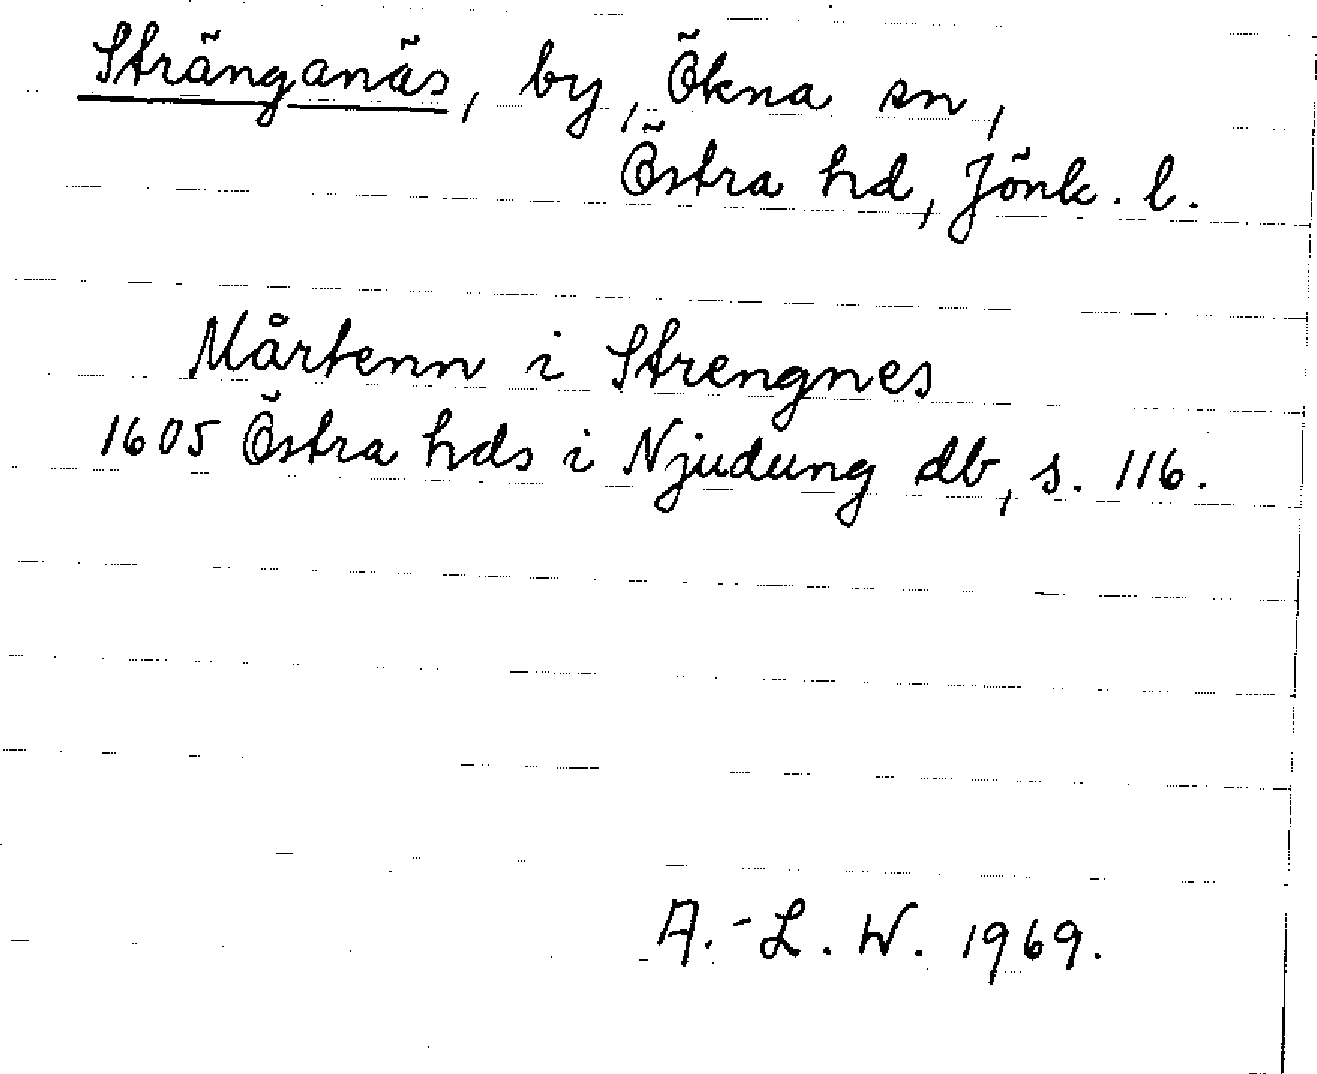 Stränganäs, by, Ökna sn,
Östra hd, Jönk. l.
Mårtenn i Strengnes
1605 Östra hds i Njudung db, s. 116.
A.-L. W. 1969.